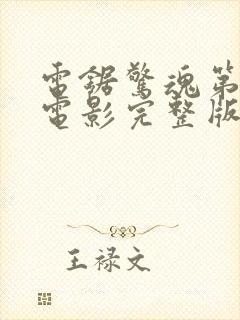 電鋸驚魂第
電影完整版
王禄文